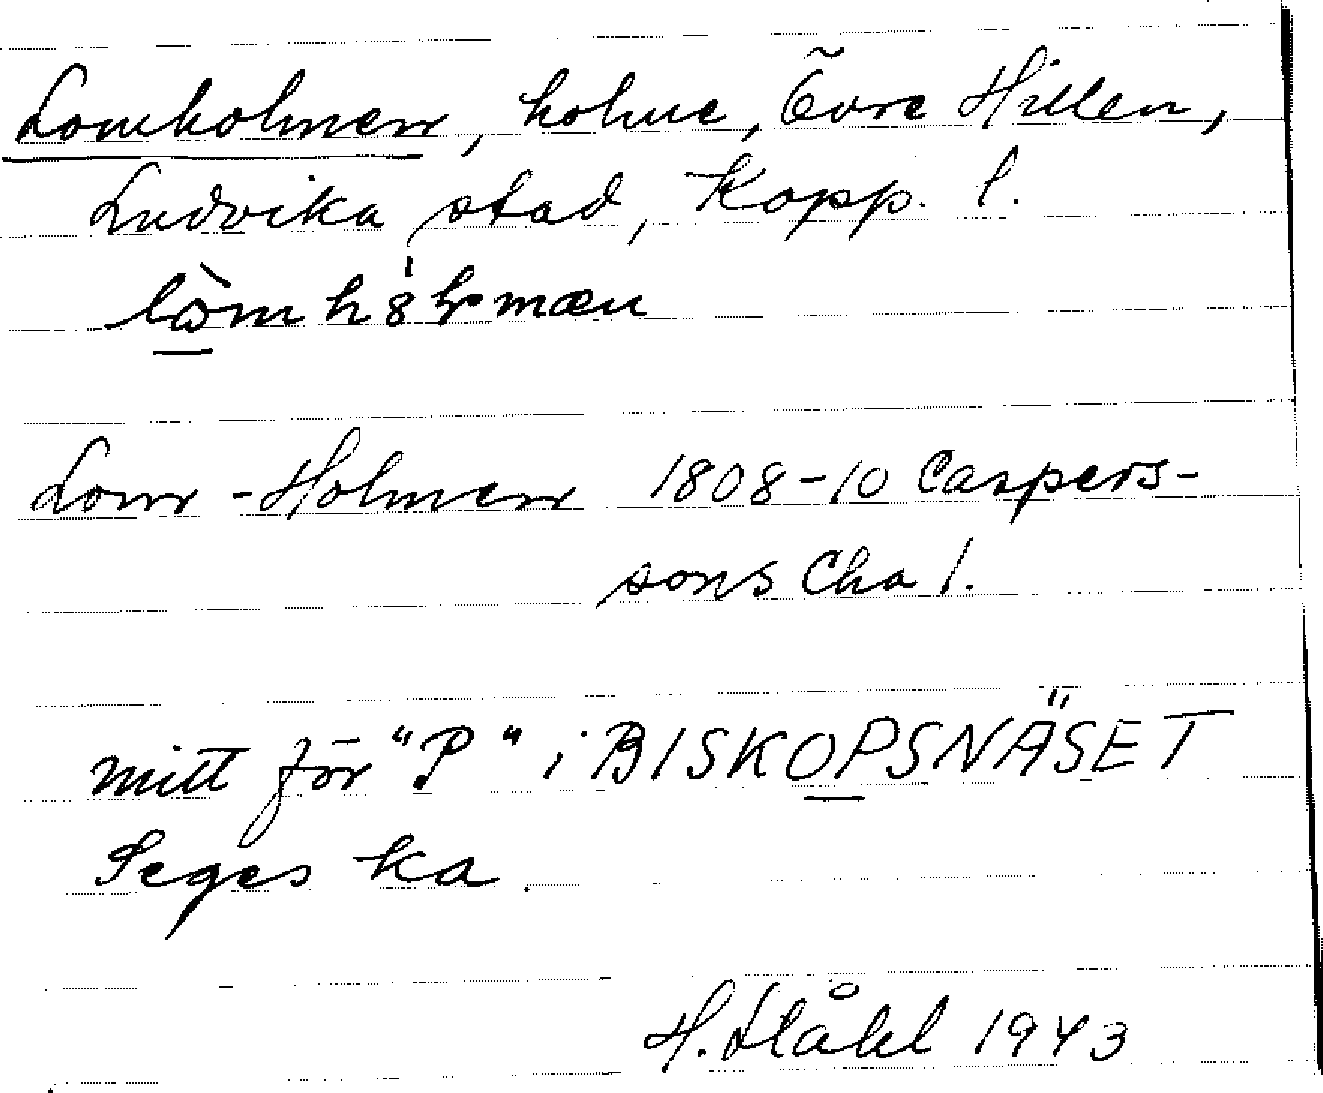 Lomholmen, holme, Övre Hillen,
Ludvika stad, Kopp. l.
Lom-Holmen 1808-10 Caspers-
sons Cha 1.
mitt för "P" i BISKOPSNÄSET
Seges ka.
H. Ståhl 1943